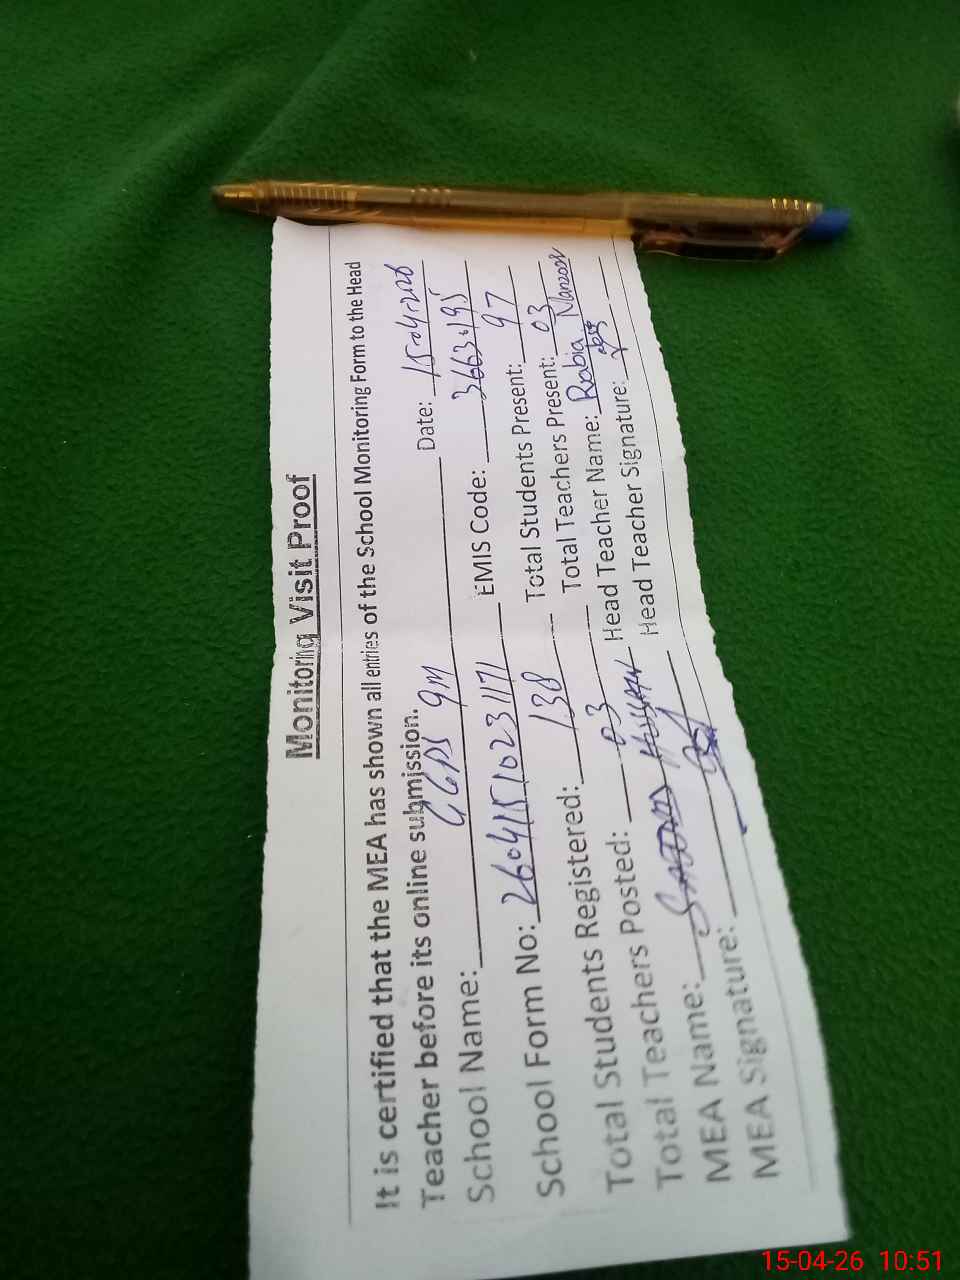 Monitoring Visit Proof
It is certified that the MEA has shown all entries of the School Monitoring Form to the Head
Teacher before its online submission.
School Name: GGPS 9M Date: 15-04-2026
School Form No: 26041510231171 EMIS Code:
Total Students Registered: 138 Total Students Present: 97
Total Teachers Posted: 03 Total Teachers Present: 03
MEA Name: Hussain Head Teacher Name: Rabia Manzoor
MEA Signature: Head Teacher Signature:
15-04-26 10:51